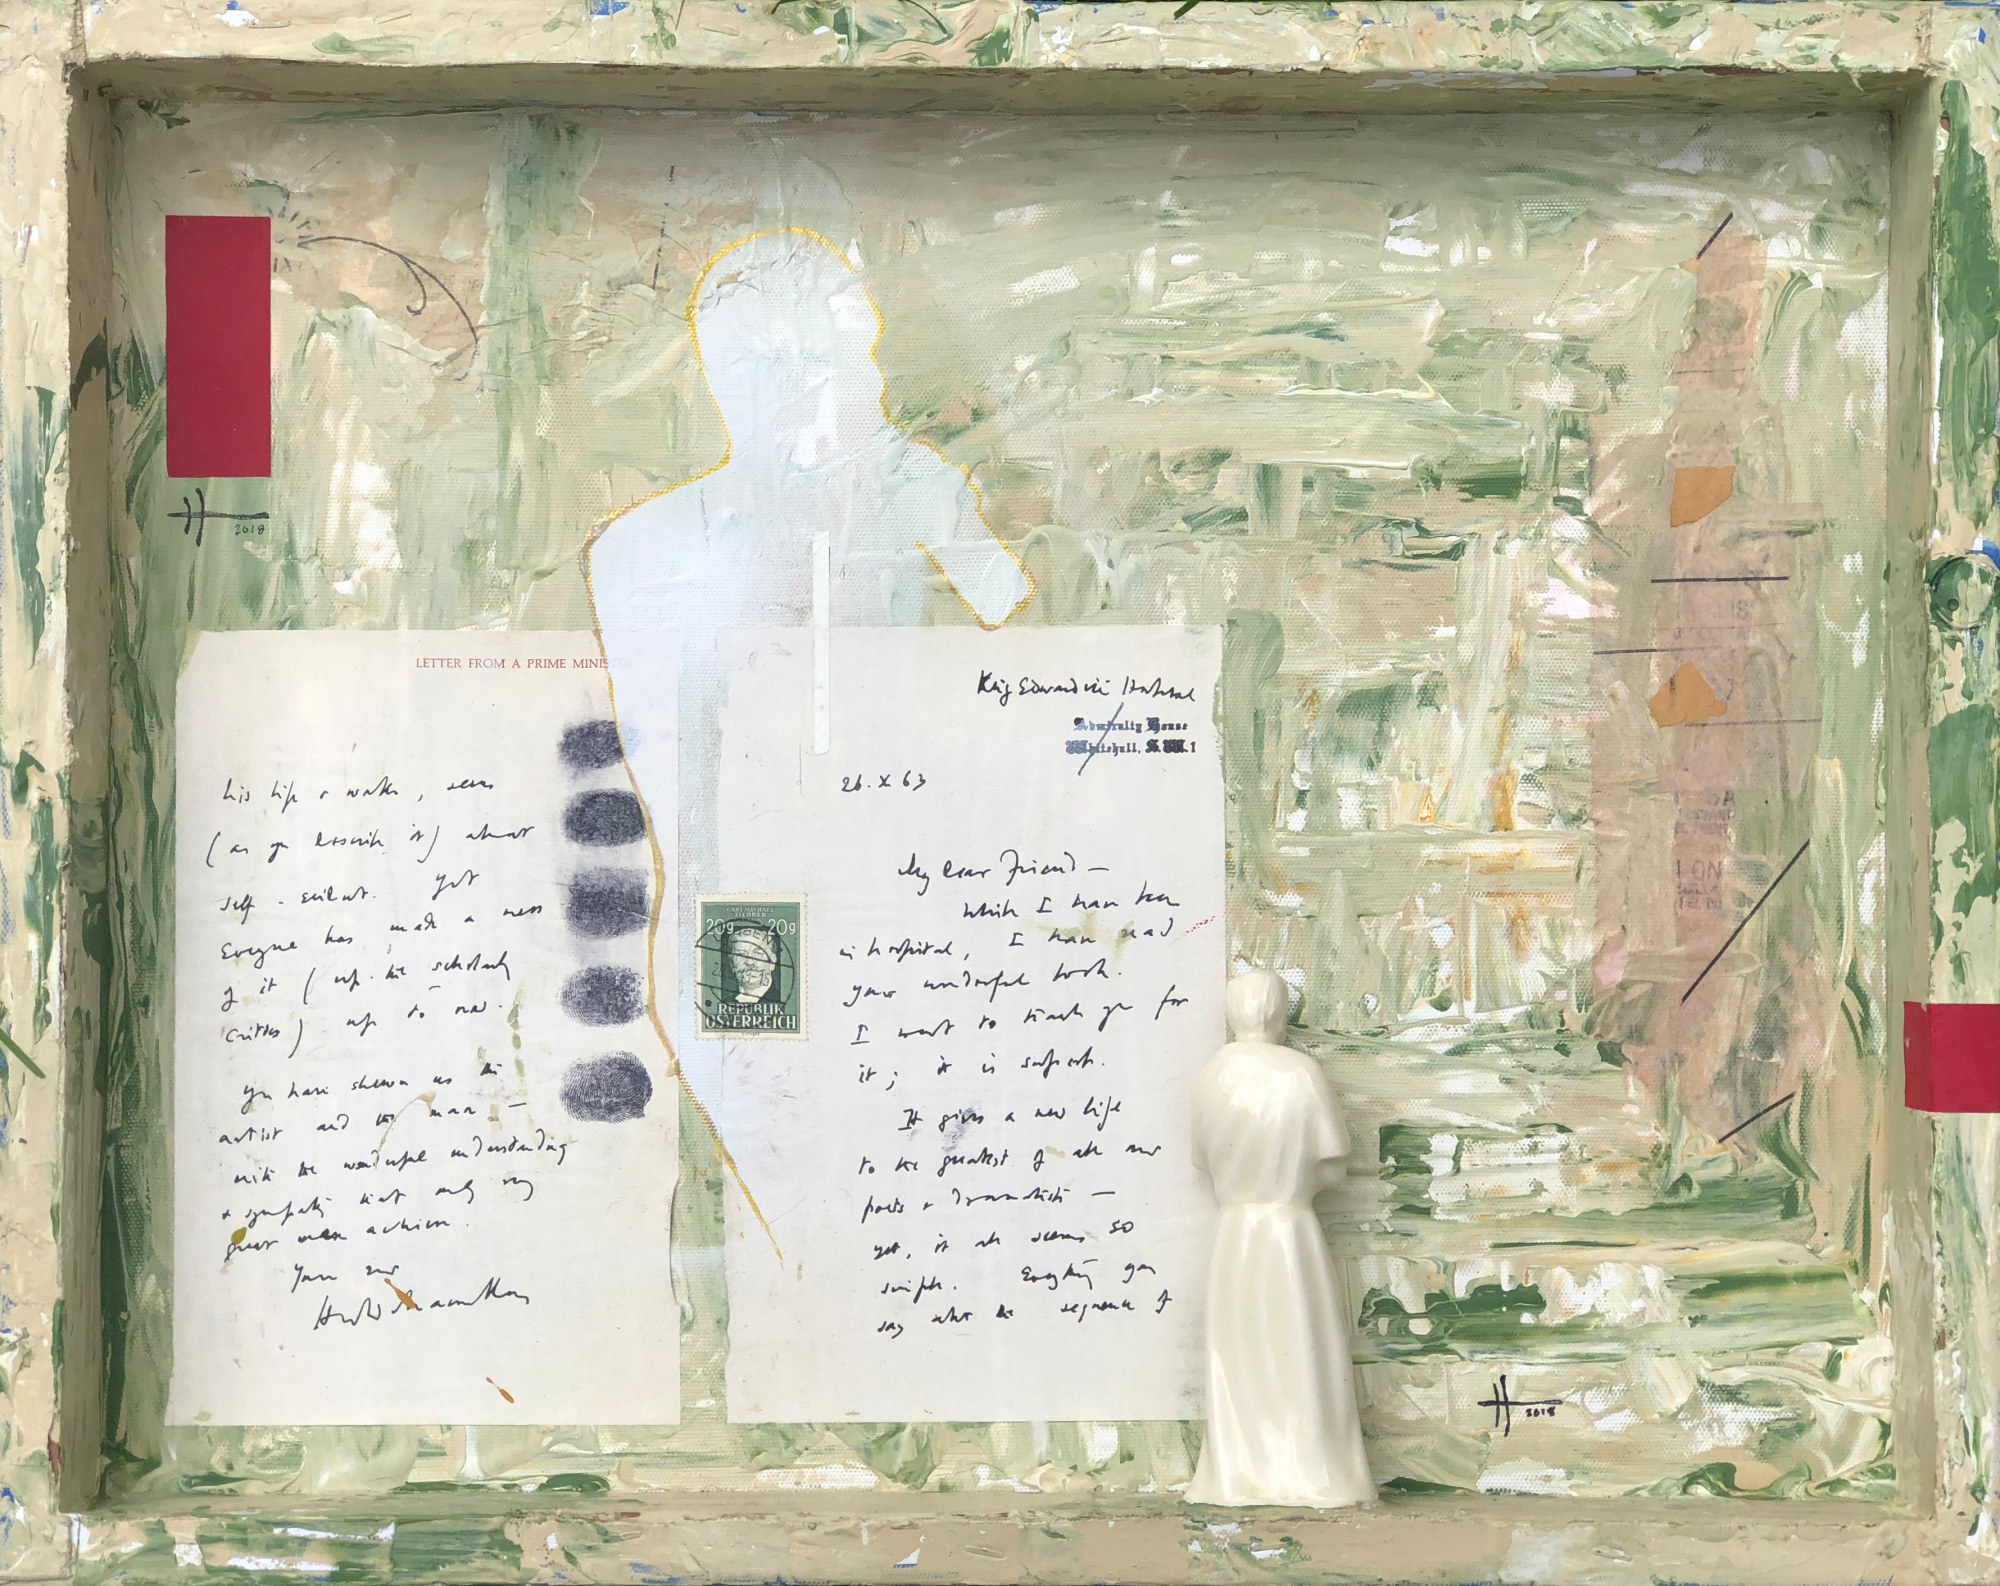 2018
LETTER FROM A PRIME MINIS
his life & works, seems
(as you describe it) almost
self-evident. Yet
Everyone has made a mess
of it (esp. the scholarly
critics) up to now.
You have shewn us the
artist and the man —
with the wonderful understanding
& sympathy that only very
great men achieve.
Yours ever
Harold Macmillan
King Edward VII Hospital
Admiralty House
Whitehall, S.W.1
26. X 63
My dear Friend —
While I have been
in hospital, I have read
your wonderful book.
I want to thank you for
it; it is superb.
It gives a new life
to the greatest of all our
poets & dramatists —
yet, it all seems so
simple. Everything you
say about the sequence of
20g 20g
REPUBLIK
ÖSTERREICH
2018